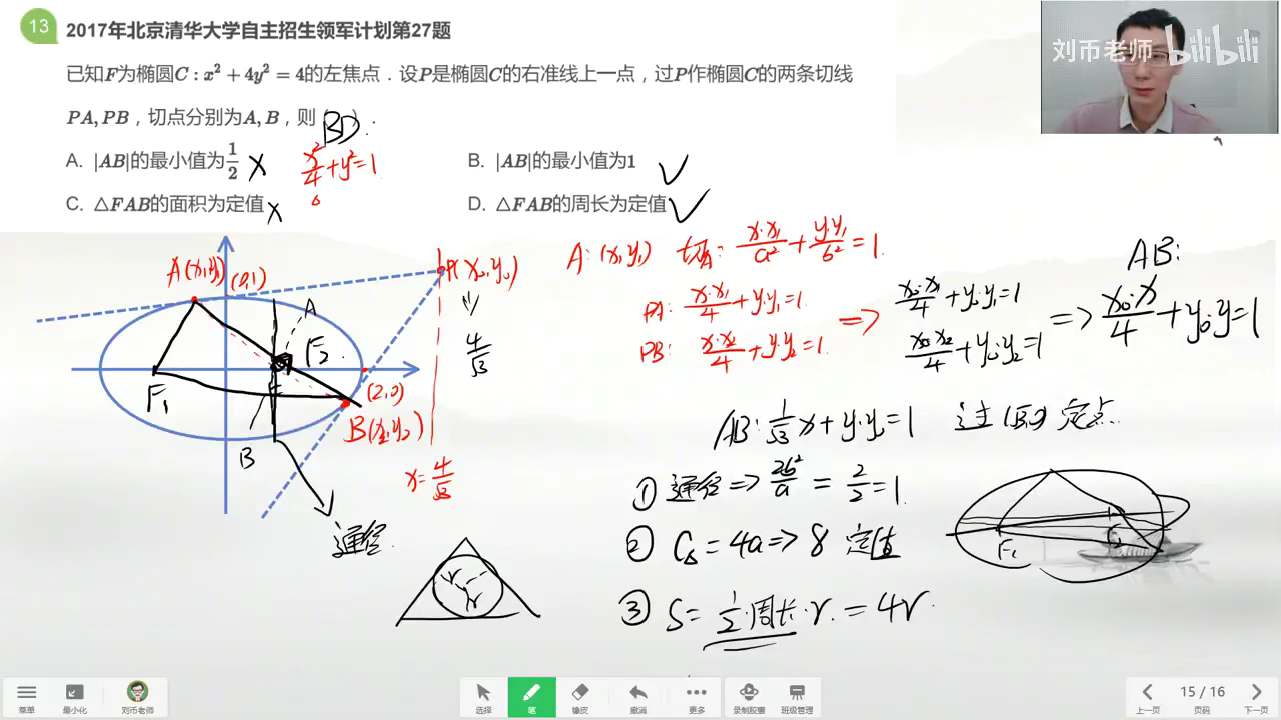 13 2017年北京清华大学自主招生领军计划第27题
刘币老师 bilibili
已知F为椭圆C：x²+4y²=4的左焦点．设P是椭圆C的右准线上一点，过P作椭圆C的两条切线
PA,PB，切点分别为A,B，则 BD .
A. |AB|的最小值为1/2 ×
x²/4+y²=1
B. |AB|的最小值为1 ✓
C. △FAB的面积为定值 ×
D. △FAB的周长为定值 ✓
A(x₁y₁)
(0,1)
P(x₀,y₀)
A
F₂
F₁
(2,0)
B(x₂,y₂)
B
4/√3
x=4/√3
通径
A: (x₁y₁) 切A: x·x₁/a²+y·y₁/b²=1.
PA: x·x₁/4+y·y₁=1.
PB: x·x₂/4+y·y₂=1.
=> x₀·x₁/4+y₀·y₁=1
x₀·x₂/4+y₀·y₂=1
=> AB:
x₀·x/4+y₀·y=1
AB: 1/√3x+y·y₀=1 过(√3,0)定点.
① 通径=>2b²/a=2/2=1.
② C△=4a=>8 定值
③ S=1/2·周长·r.=4r.
r
r
F₁
F₂
菜单 最小化 刘币老师 选择 笔 橡皮 撤消 更多 录制胶囊 班级管理 上一页 15 / 16 页码 下一页